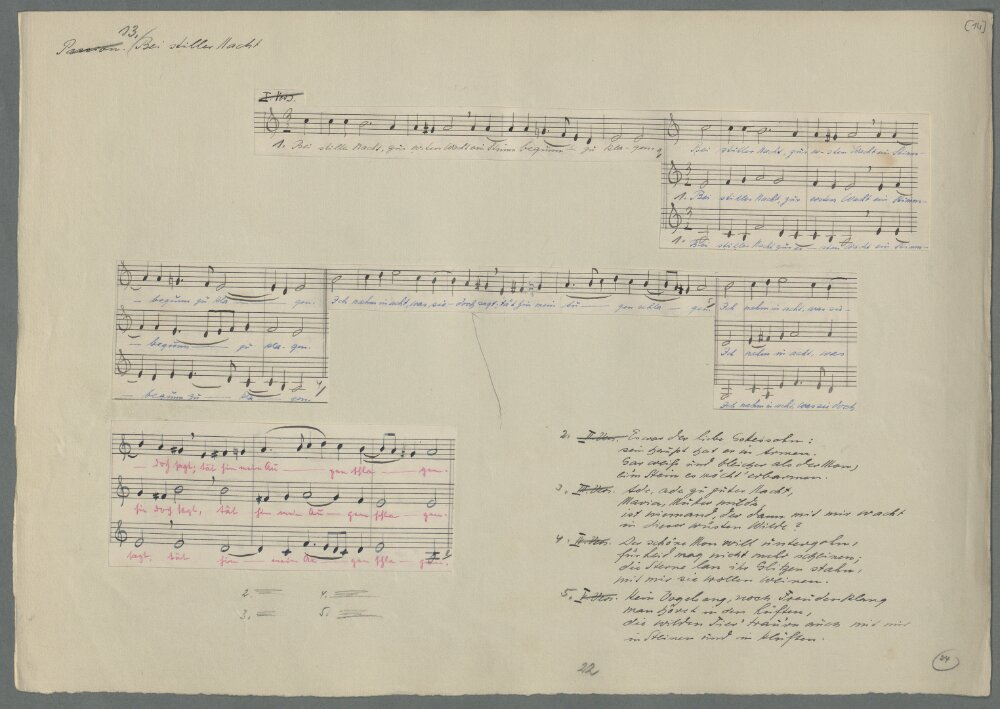 [14]
13.
Passion. / Bei stiller Nacht
I. Vers.
1. Bei stiller Nacht, zur ersten Wacht ein Stimm begunn - zu kla - gen,
Bei stiller Nacht, zur er - sten Wacht ein Stimm -
1. Bei stiller Nacht, zur ersten Wacht ein Stimm -
1. Bei stiller Nacht zur er - sten Wacht ein Stimm -
- begunn zu kla - gen.
Ich nahm in acht, was sie - doch sagt, tät hin mein Au - gen schla - gen.
Ich nahm in acht, was sie -
- begunn - zu kla - gen.
Ich nahm in acht, was
- begunn zu - kla - gen.
Ich nahm in acht, was sie doch
- doch sagt, tät hin mein Au - gen schla - gen.
sie doch sagt, tät hin mein Au - gen schla - gen.
sagt, tät hin - mein Au - gen schla - gen.
2. II. Vers. Es war der liebe Gottessohn:
sein Haupt hat er in Armen.
Gar weiß und bleicher als der Mon,
ein Stein es möcht erbarmen.
3. III. Vers. Ade, ade zu guter Nacht,
Maria, Mutter milde
ist niemand, der dann mit mir wacht
in dieser wüsten Wilde?
4. Vers. Der schöne Mon will untergohn,
für Leid mag nicht mehr scheinen;
die Sterne lan ihr Glitzen stahn,
mit mir sie wollen weinen.
5. Vers. Kein Vogelsang, noch Freudenklang
man höret in den Lüften,
die wilden Tier' traur'n auch mit mir
in Steinen und in Klüften.
2. 4.
3. 5.
22
24